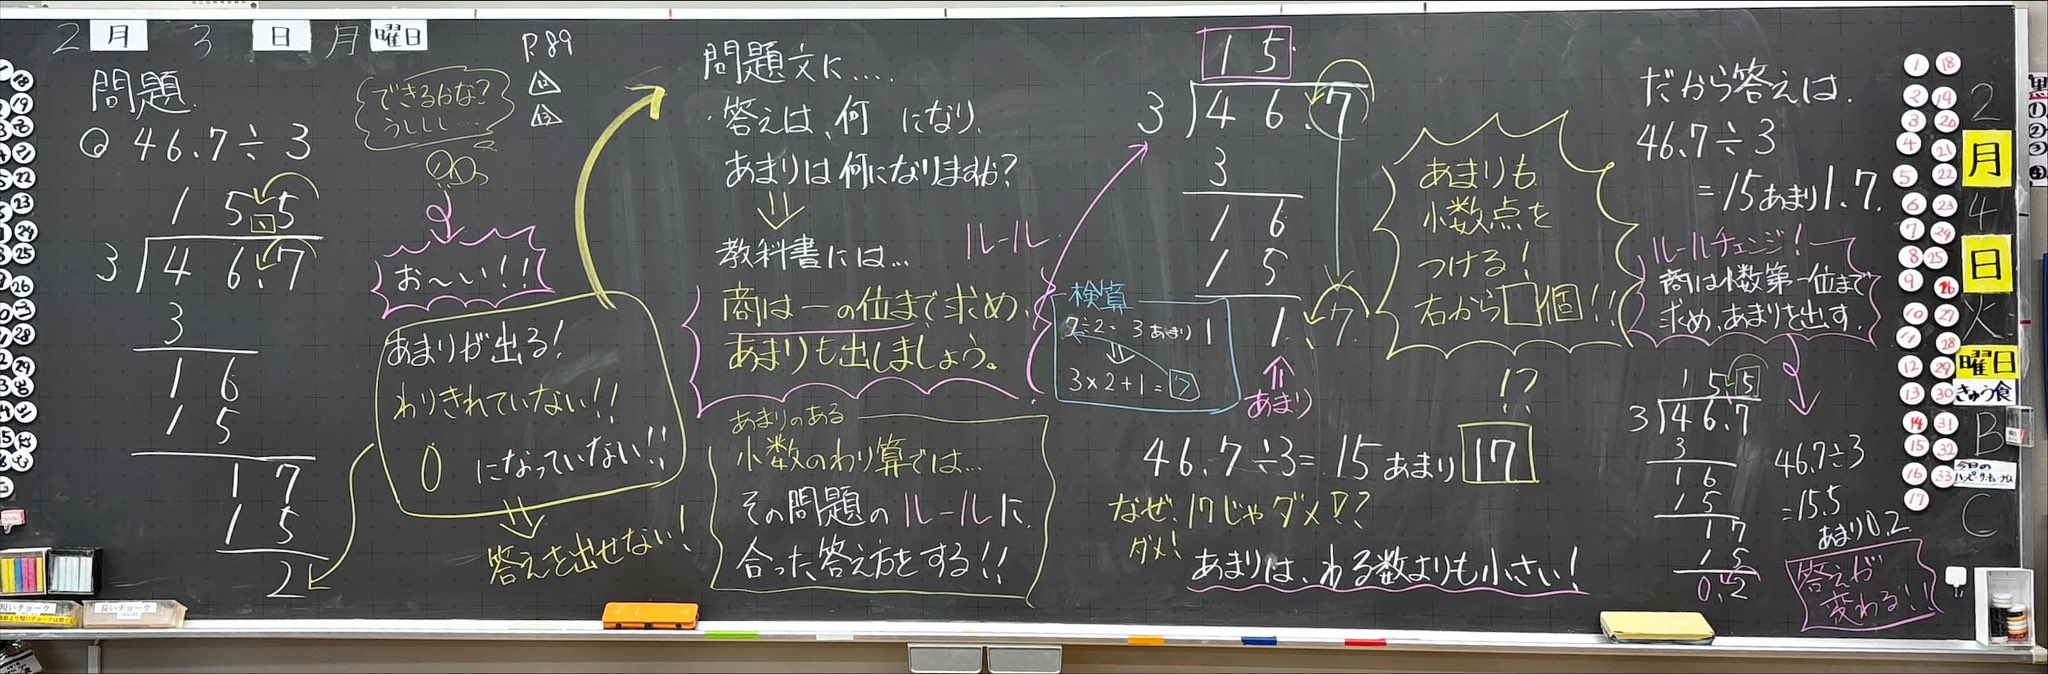 2 月 3 日 月 曜日
問題
46.7÷3
1 5.5
3)46.7
3
16
15
17
15
2
できるかな?
うししし…
お〜い!!
P.89
△12
△13
あまりが出る!
わりきれていない!!
0 になっていない!!
答えを出せない!
問題文に….
・答えは、何 になり、
あまりは何になりますか?
教科書には…
ルール
商は一の位まで求め、
あまりも出しましょう。
あまりのある
小数のわり算では…
その問題のルールに
合った答え方をする!!
15
3)46.7
3
16
15
1.7
あまり
検算
7÷2=3あまり1
3×2+1=7
あまりも
小数点を
つける!
右から□個!!
46.7÷3=15あまり17
!?
なぜ、17じゃダメ!?
ダメ!
あまりは、わる数よりも小さい!
だから答えは、
46.7÷3
=15あまり1.7.
ルールチェンジ!
商は小数第一位まで
求め、あまりを出す。
15.5
3)46.7
3
16
15
17
15
0.2
46.7÷3
=15.5
あまり0.2
答えが
変わる!!
1 18
2 19
3 20
4 21
5 22
6 23
7 24
8 25
9 26
10 27
11 28
12 29
13 30
14 31
15 32
16 33
17
2
月
4
日
火
曜日
きゅう食
B
今日の
C
短いチョーク
長いチョーク